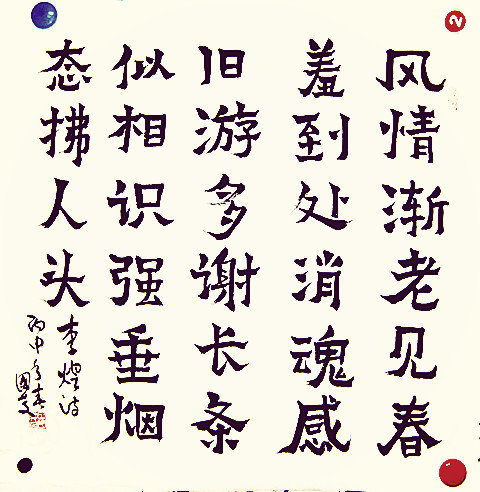 风情渐老见春
羞到处消魂感
旧游多谢长条
似相识强垂烟
态拂人头
李煜诗
丙申年春